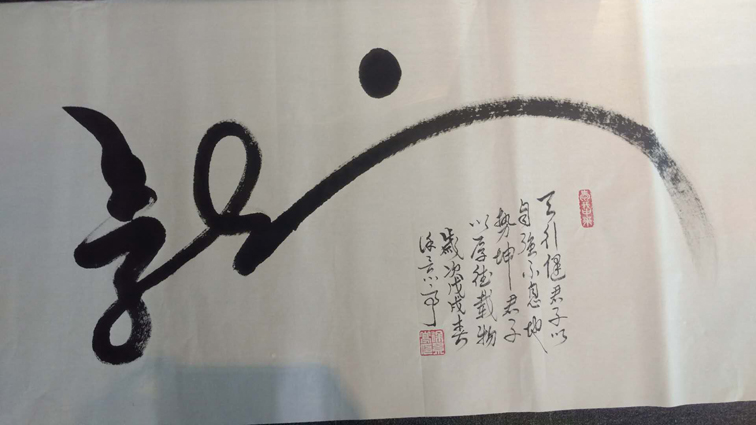 龍
天行健君子以
自強不息地
勢坤君子
以厚德載物
歲次戊戌春